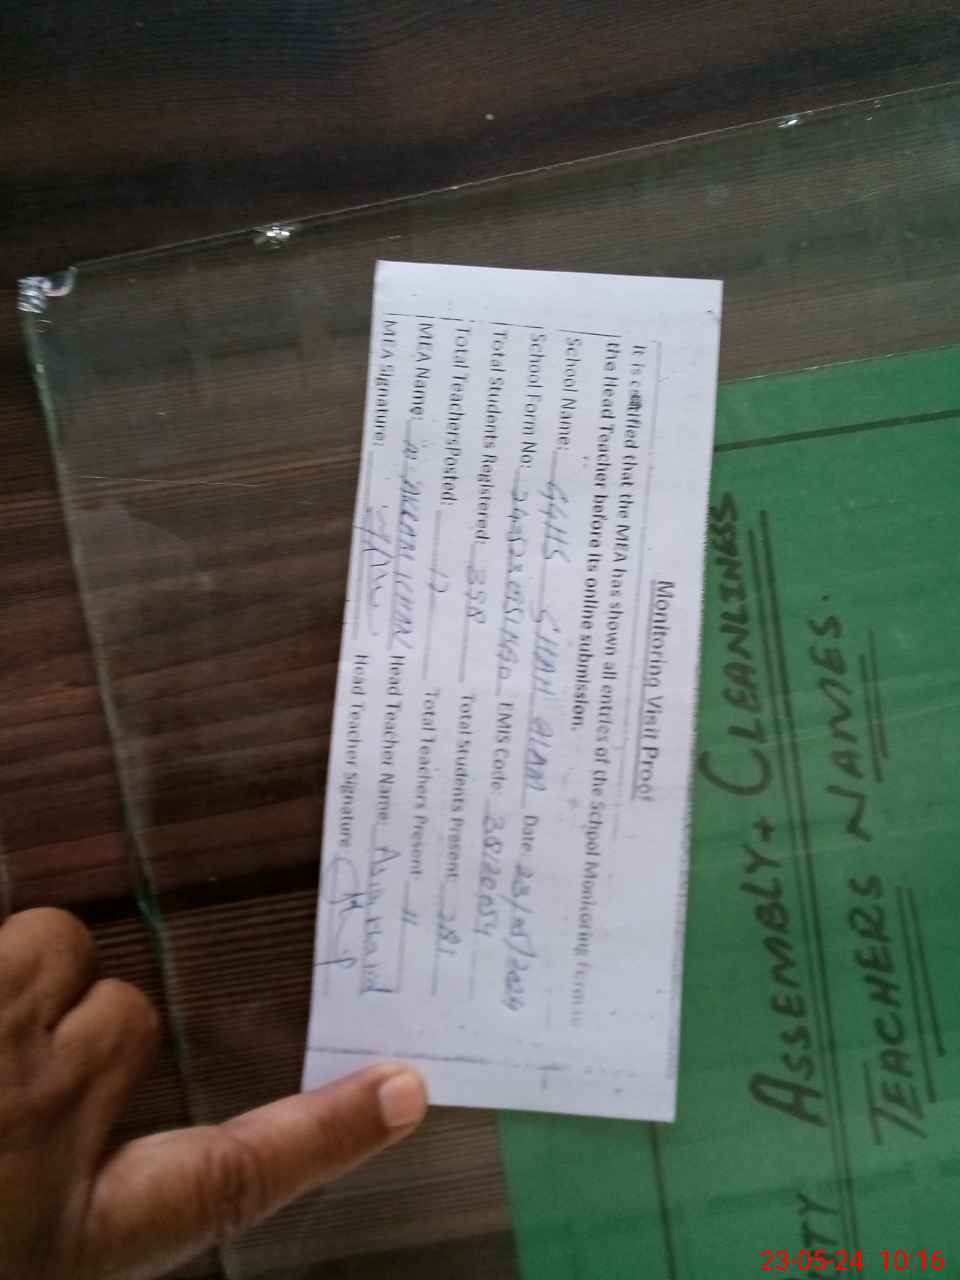 Monitoring Visit Proof
It is certified that the MEA has shown all entries of the School Monitoring Form to
the Head Teacher before its online submission.
School Name: GGHS SHAH ALAM Date: 23/05/2024
School Form No: EMIS Code: 38120054
Total Students Registered: 398 Total Students Present: 281
Total Teachers Posted: 12 Total Teachers Present: 11
MEA Name: KHAN Head Teacher Name: Asia
MEA Signature: Head Teacher Signature
ASSEMBLY + CLEANLINESS
TEACHERS NAMES.
TY
23-05-24 10:16